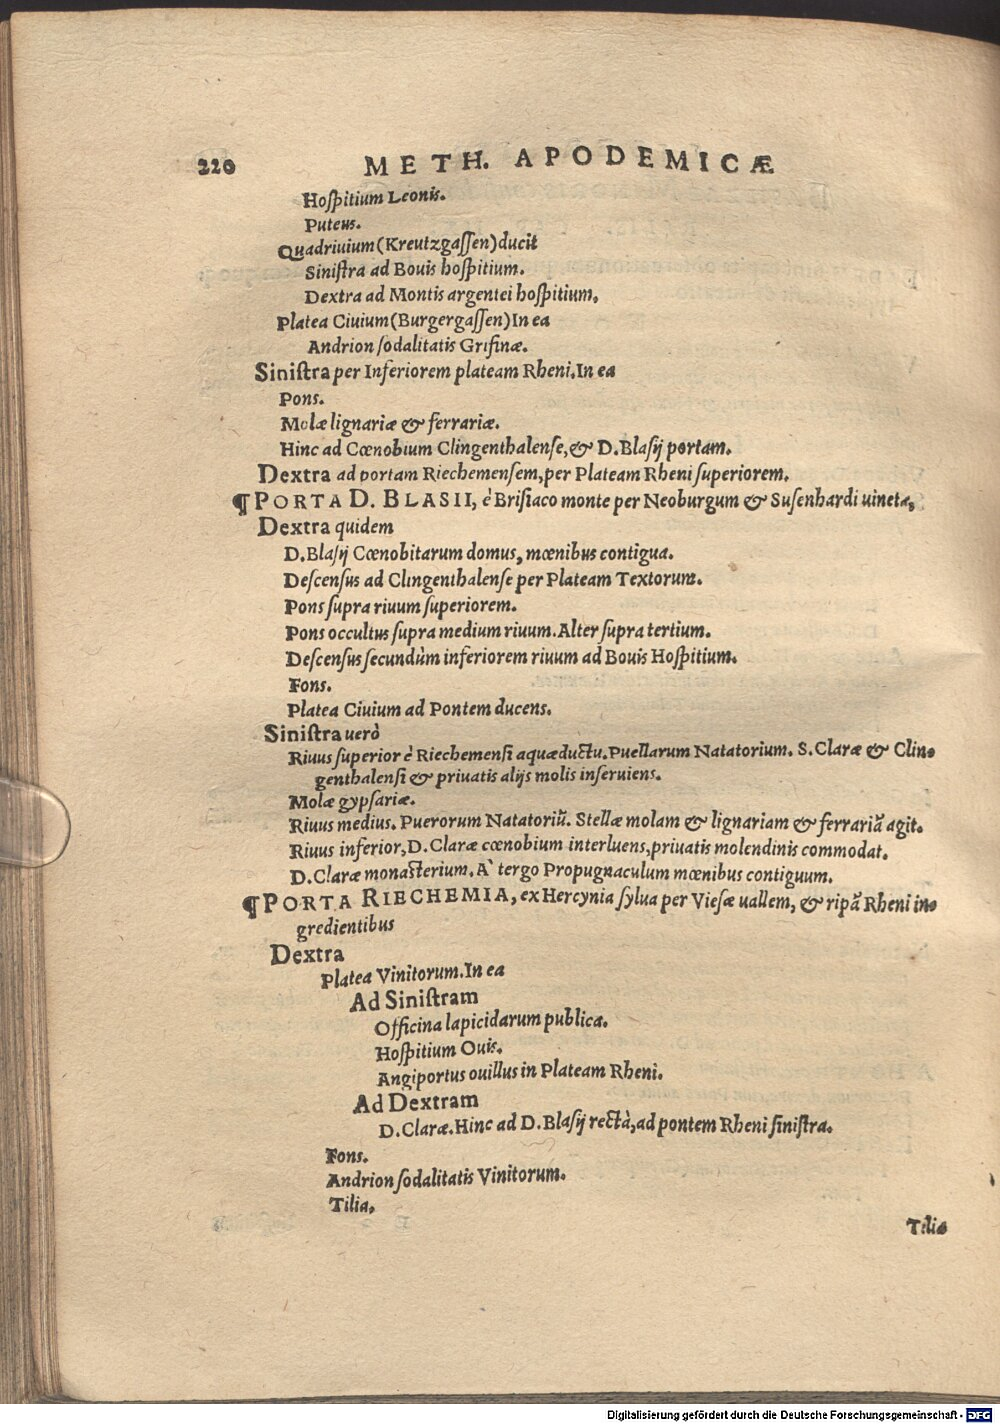 220 METH. APODEMICÆ
Hoſpitium Leonis.
Puteus.
Quadriuium (Kreutzgaſſen) ducit
Siniſtra ad Bouis hoſpitium.
Dextra ad Montis argentei hoſpitium.
Platea Ciuium (Burgergaſſen) In ea
Andrion ſodalitatis Grifinæ.
Siniſtra per Inferiorem plateam Rheni. In ea
Pons.
Molæ lignariæ & ferrariæ.
Hinc ad Cœnobium Clingenthalenſe, & D. Blaſij portam.
Dextra ad portam Riechemenſem, per Plateam Rheni ſuperiorem.
¶ PORTA D. BLASII, è Briſiaco monte per Neoburgum & Suſenhardi uineta,
Dextra quidem
D. Blaſij Cœnobitarum domus, mœnibus contigua.
Deſcenſus ad Clingenthalenſe per Plateam Textorum.
Pons ſupra riuum ſuperiorem.
Pons occultus ſupra medium riuum. Alter ſupra tertium.
Deſcenſus ſecundùm inferiorem riuum ad Bouis Hoſpitium.
Fons.
Platea Ciuium ad Pontem ducens.
Siniſtra uerò
Riuus ſuperior è Riechemenſi aquæductu. Puellarum Natatorium. S. Claræ & Clin-
genthalenſi & priuatis alijs molis inſeruiens.
Molæ gypſariæ.
Riuus medius. Puerorum Natatoriũ. Stellæ molam & lignariam & ferrariã agit.
Riuus inferior, D. Claræ cœnobium interluens, priuatis molendinis commodat.
D. Claræ monaſterium. A` tergo Propugnaculum mœnibus contiguum.
¶ PORTA RIECHEMIA, ex Hercynia ſylua per Vieſæ uallem, & ripã Rheni in-
gredientibus
Dextra
Platea Vinitorum. In ea
Ad Siniſtram
Officina lapicidarum publica.
Hoſpitium Ouis.
Angiportus ouillus in Plateam Rheni.
Ad Dextram
D. Claræ. Hinc ad D. Blaſij rectà, ad pontem Rheni ſiniſtra.
Fons.
Andrion ſodalitatis Vinitorum.
Tilia.
Tilia
Digitalisierung gefördert durch die Deutsche Forschungsgemeinschaft - DFG